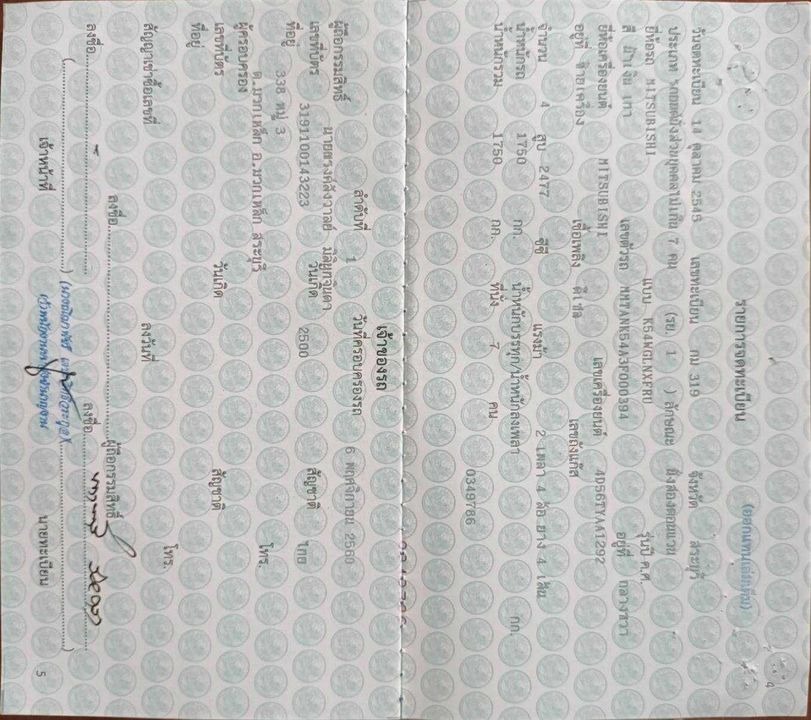 4
รายการจดทะเบียน
(ออกแทนเล่มเดิม)
วันจดทะเบียน 14 ตุลาคม 2545 เลขทะเบียน กม 319 จังหวัด สระบุรี
ประเภท รถยนต์นั่งส่วนบุคคลไม่เกิน 7 คน (รย. 1 ) ลักษณะ นั่งสองตอนแวน
ยี่ห้อรถ MITSUBISHI แบบ K94WGLNXFRU รุ่นปี ค.ศ.
สี น้ำเงิน เทา เลขตัวรถ MMTANK94A3F000394 อยู่ที่ กลางขวา
ยี่ห้อเครื่องยนต์ MITSUBISHI เลขเครื่องยนต์ 4D56TYAA1292
อยู่ที่ ซ้ายเครื่อง เชื้อเพลิง ดีเซล เลขถังแก๊ส
จำนวน 4 สูบ 2477 ซีซี แรงม้า 2 เพลา 4 ล้อ ยาง 4 เส้น
น้ำหนักรถ 1750 กก. น้ำหนักบรรทุก/น้ำหนักลงเพลา กก.
น้ำหนักรวม 1750 กก. ที่นั่ง 7 คน
0349786
เจ้าของรถ
ลำดับที่ 1 วันที่ครอบครองรถ 6 พฤศจิกายน 2560
ผู้ถือกรรมสิทธิ์
เลขที่บัตร 3191100143223 วันเกิด 2500 สัญชาติ ไทย
ที่อยู่ 338 หมู่ 3
ต.มวกเหล็ก อ.มวกเหล็ก สระบุรี โทร.
ผู้ครอบครอง
เลขที่บัตร วันเกิด สัญชาติ
ที่อยู่
โทร.
สัญญาเช่าซื้อเลขที่ ลงวันที่
ลงชื่อ ผู้ถือกรรมสิทธิ์
ลงชื่อ ลงชื่อ
เจ้าหน้าที่ นายทะเบียน
5